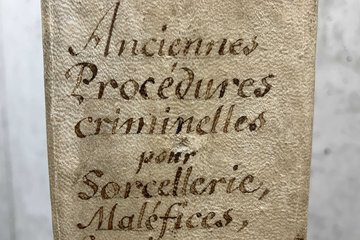 Anciennes
Procédures
criminelles
pour
Sorcellerie,
Maléfices,